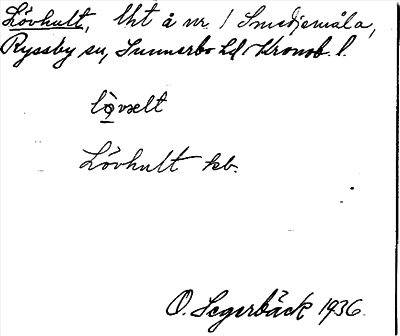 Lövhult, lht å nr 1 Smedjemåla,
Ryssby sn, Sunnerbo hd Kronob. l.
Lövhult kb.
O. Segerbäck 1936.